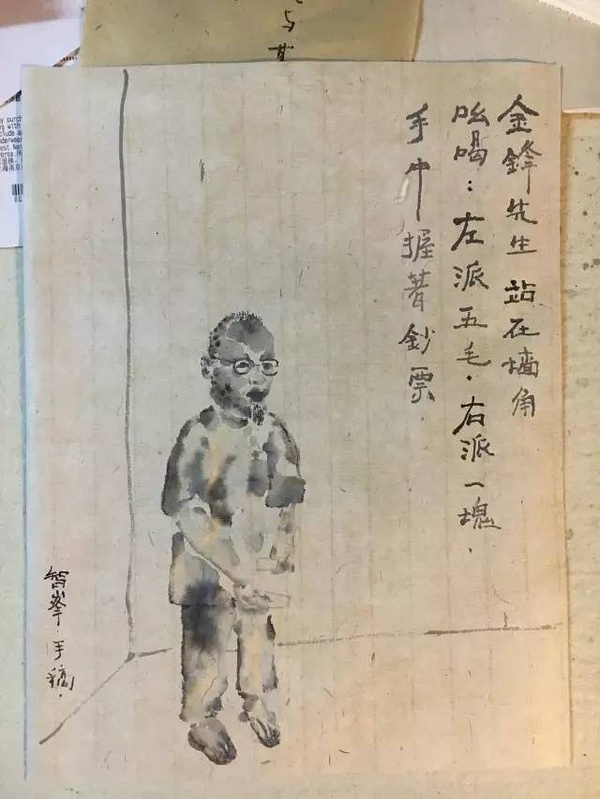 金鋒先生 站在墙角
吆喝：左派五毛．右派一塊．
手中握著鈔票．
智峯．手稿．
与其